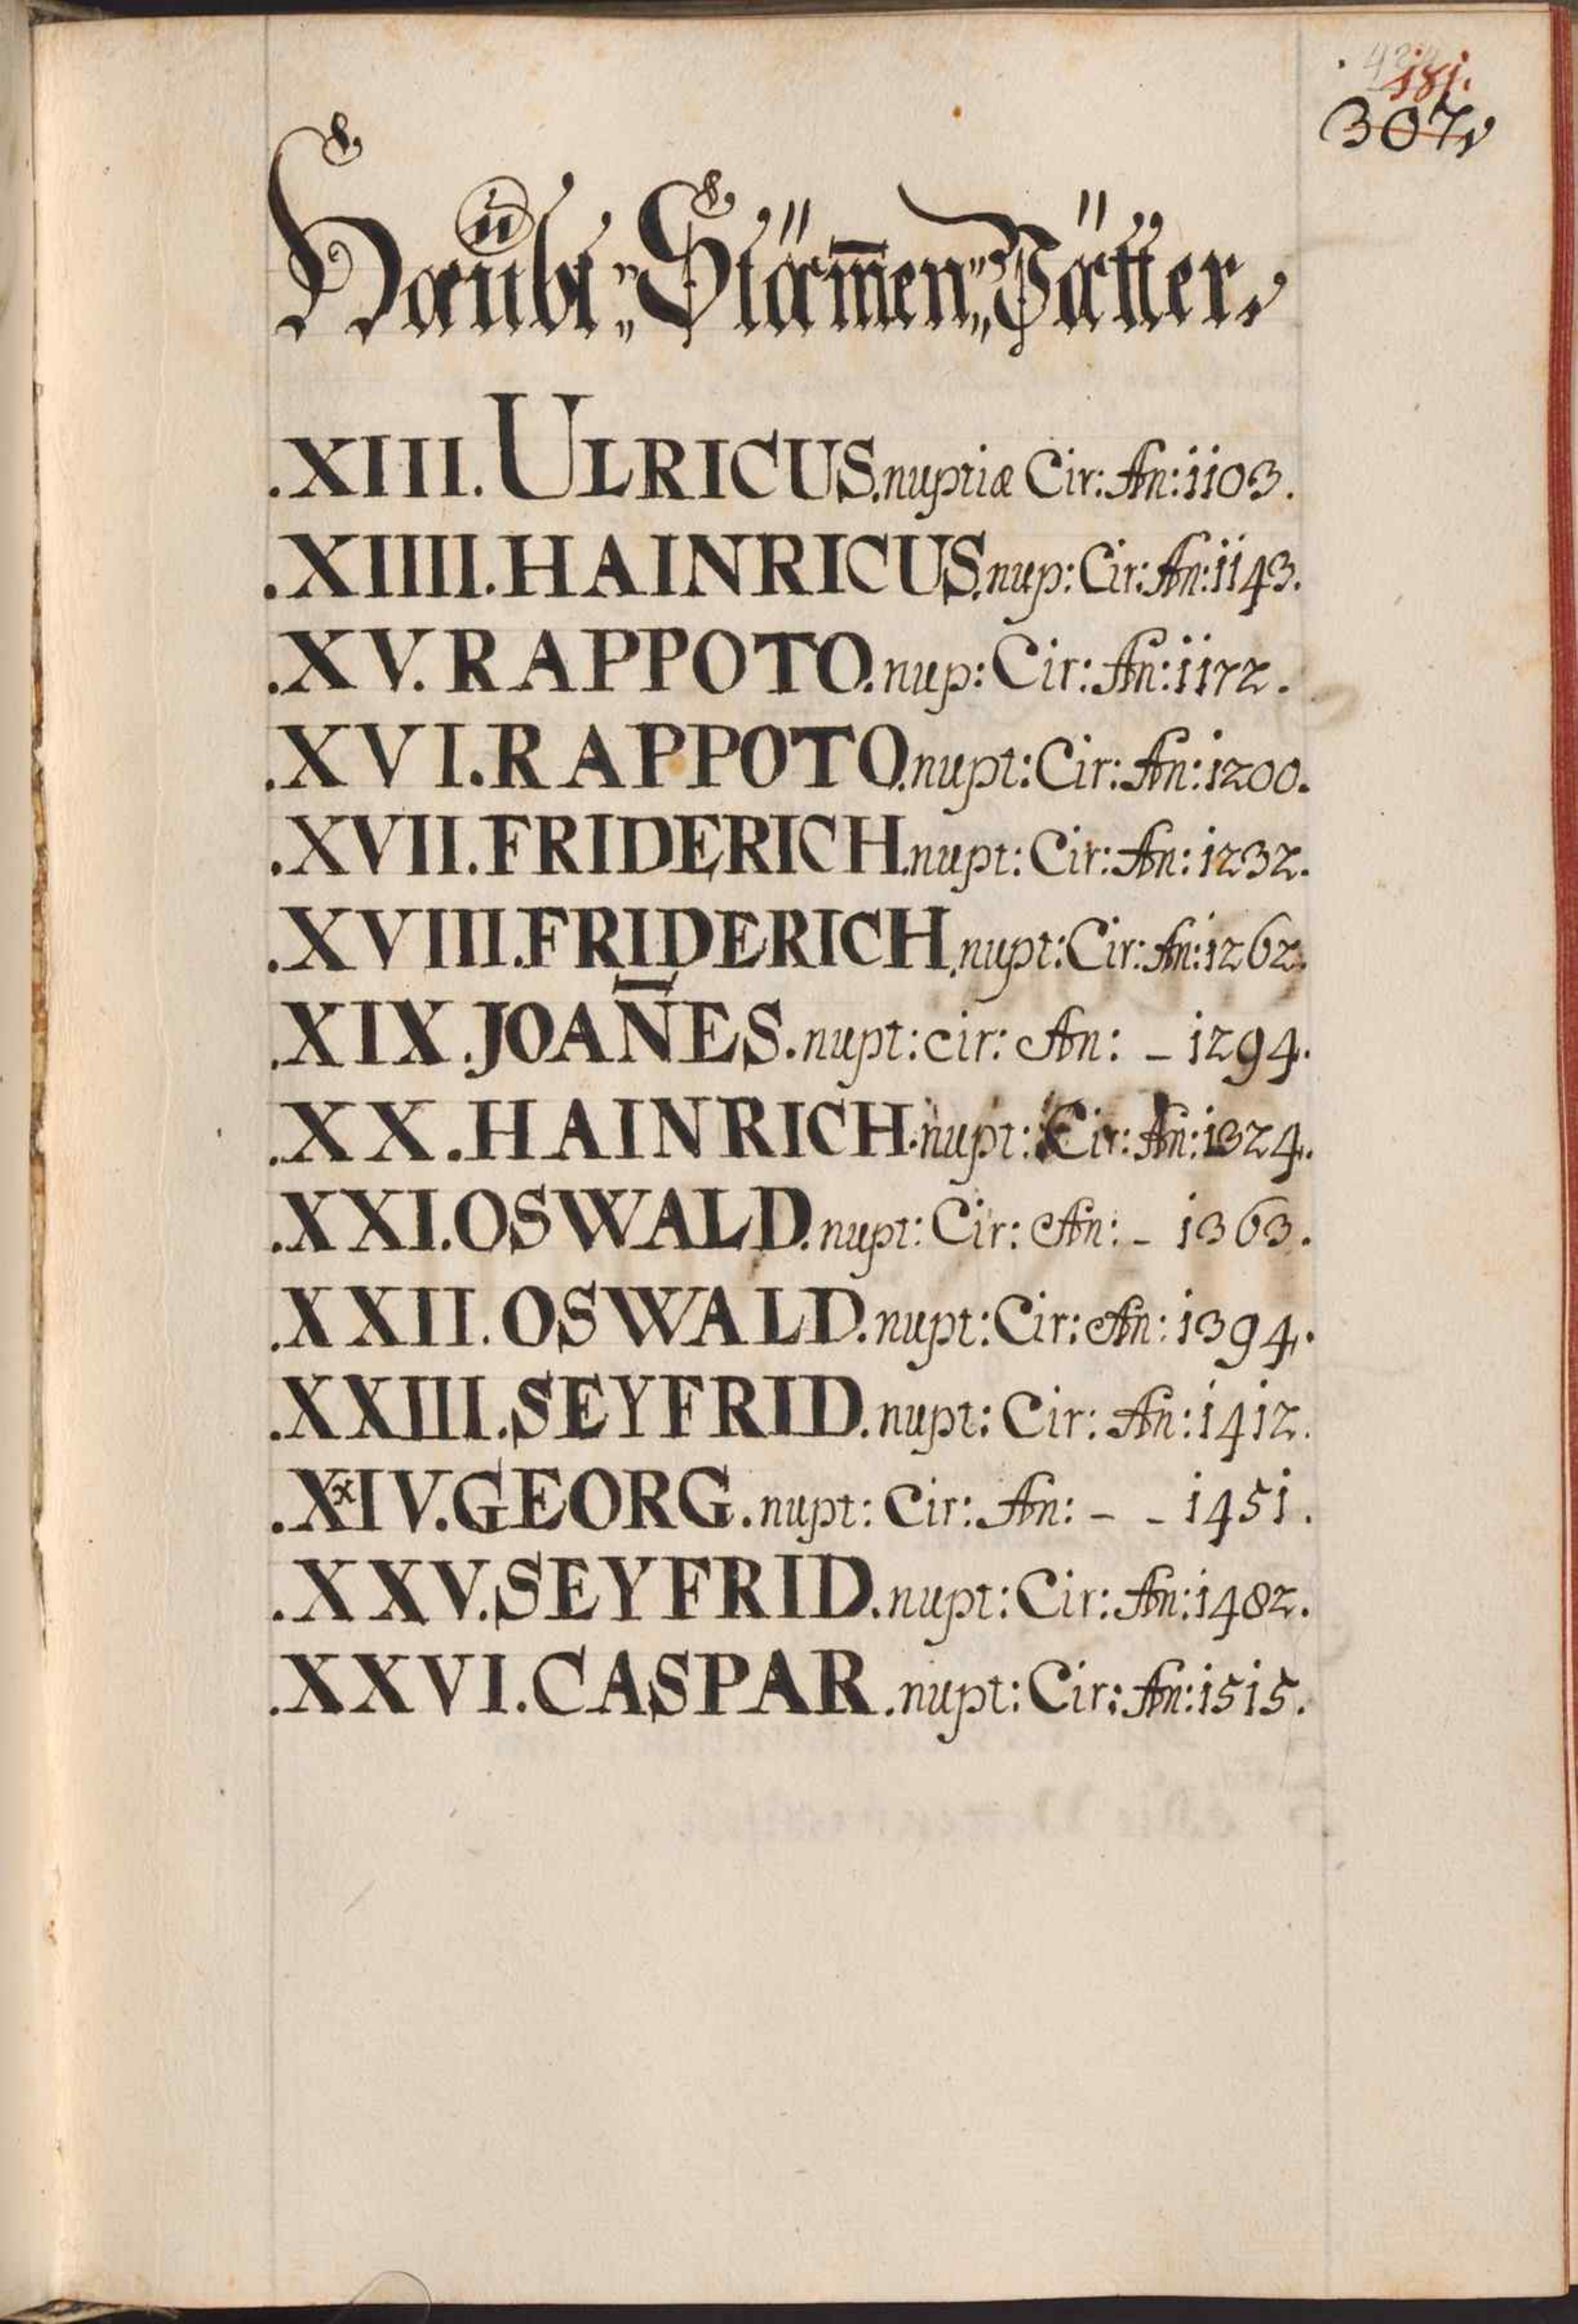 181.
307
Haubt „ Stäm̄en „ Vätter
.XIII. ULRICUS. nuptiæ Cir: An: 1103.
.XIIII. HAINRICUS. nup: Cir: An: 1143.
.XV. RAPPOTO. nup: Cir: An: 1172.
.XVI. RAPPOTO. nupt: Cir: An: 1200.
.XVII. FRIDERICH. nupt: Cir: An: 1232.
.XVIII. FRIDERICH. nupt: Cir: An: 1262.
.XIX. JOAN̄ES. nupt: cir: An: – 1294.
.XX. HAINRICH. nupt: Cir: An: 1324.
.XXI. OSWALD. nupt: Cir: An: – 1363.
.XXII. OSWALD. nupt: Cir: An: 1394.
.XXIII. SEYFRID. nupt: Cir: An: 1412.
.XxIV. GEORG. nupt: Cir: An: – – 1451.
.XXV. SEYFRID. nupt: Cir: An: 1482.
.XXVI. CASPAR. nupt: Cir: An: 1515.